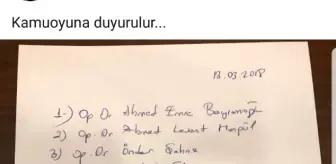 Kamuoyuna duyurulur...
13.03.2018
1-) Op Dr Ahmed Emre
2) Op. Dr Ahmed Levent
3) Op. Dr Önder Şahin